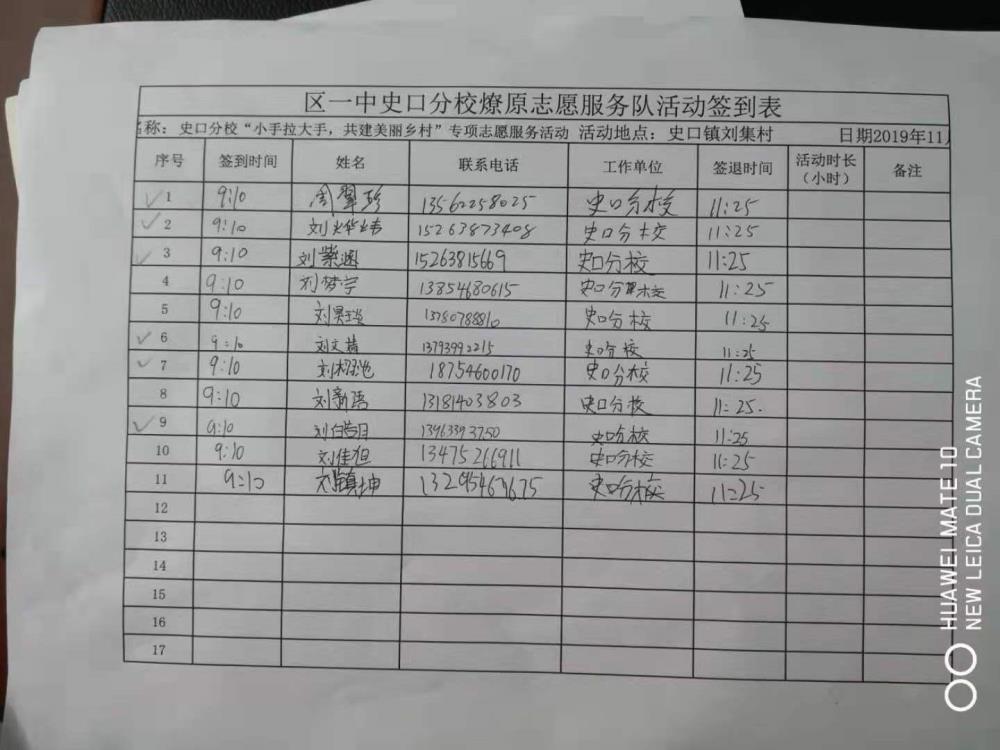 区一中史口分校燎原志愿服务队活动签到表
名称：史口分校“小手拉大手，共建美丽乡村”专项志愿服务活动 活动地点：史口镇刘集村 日期2019年11月
序号 签到时间 姓名 联系电话 工作单位 签退时间 活动时长（小时） 备注
1 9:10 周翠珍 13562258025 史口分校 11:25
2 9:10 刘 15263873408 史口分校 11:25
3 9:10 刘紫涵 15263815669 史口分校 11:25
4 9:10 刘梦宇 13854680615 史口分校 11:25
5 9:10 刘昊 13780788810 史口分校 11:25
6 9:10 刘文 13793992215 史口分校 11:25
7 9:10 刘 18754600170 史口分校 11:25
8 9:10 刘新语 13181403803 史口分校 11:25.
9 9:10 刘 13963393750 史口分校 11:25
10 9:10 刘佳 13475266911 史口分校 11:25
11 9:10 刘镇坤 史口分校 11:25
12
13
14
15
16
17
HUAWEI MATE 10
NEW LEICA DUAL CAMERA